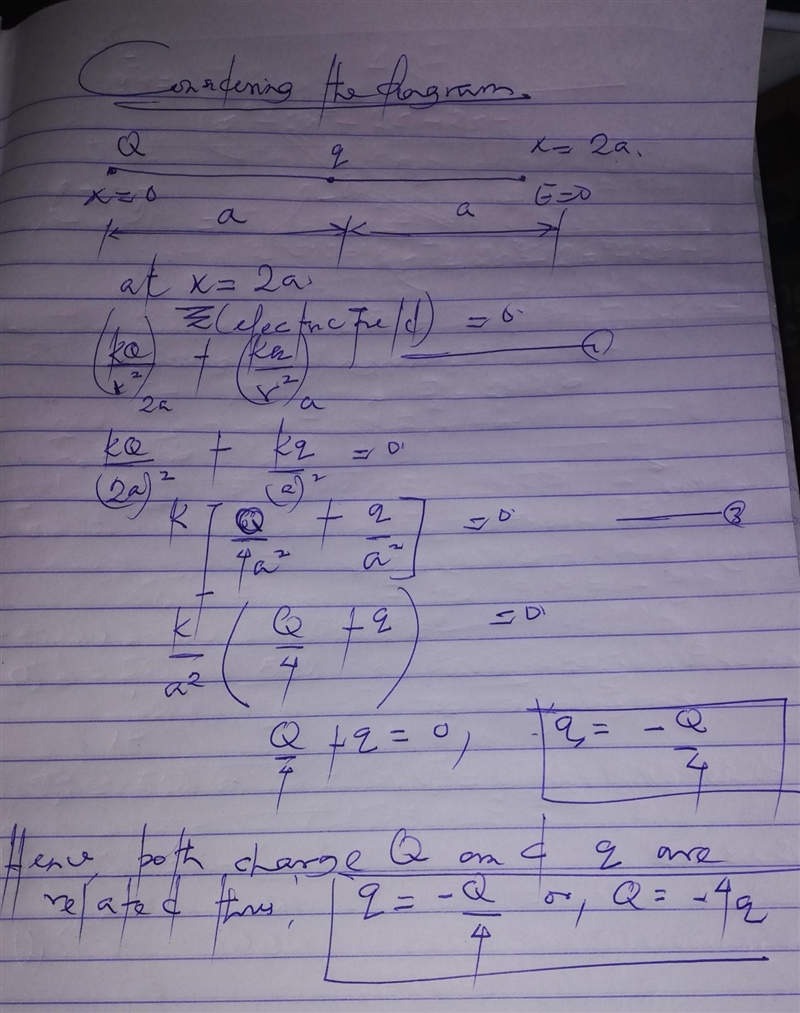 Considering the diagram.
Q q x = 2a.
x = 0 E=0
a a
at x = 2a.
Σ(electric field) = 0.
(kQ/r²)2a + (kq/r²)a ——— ①
kQ/(2a)² + kq/(a)² = 0
K [Q/4a² + q/a²] = 0 ——— ②
k/a² (Q/4 + q) = 0.
Q/4 + q = 0, q = -Q/4
Hence, both charge Q and q are
related thus, q = -Q/4 or, Q = -4q